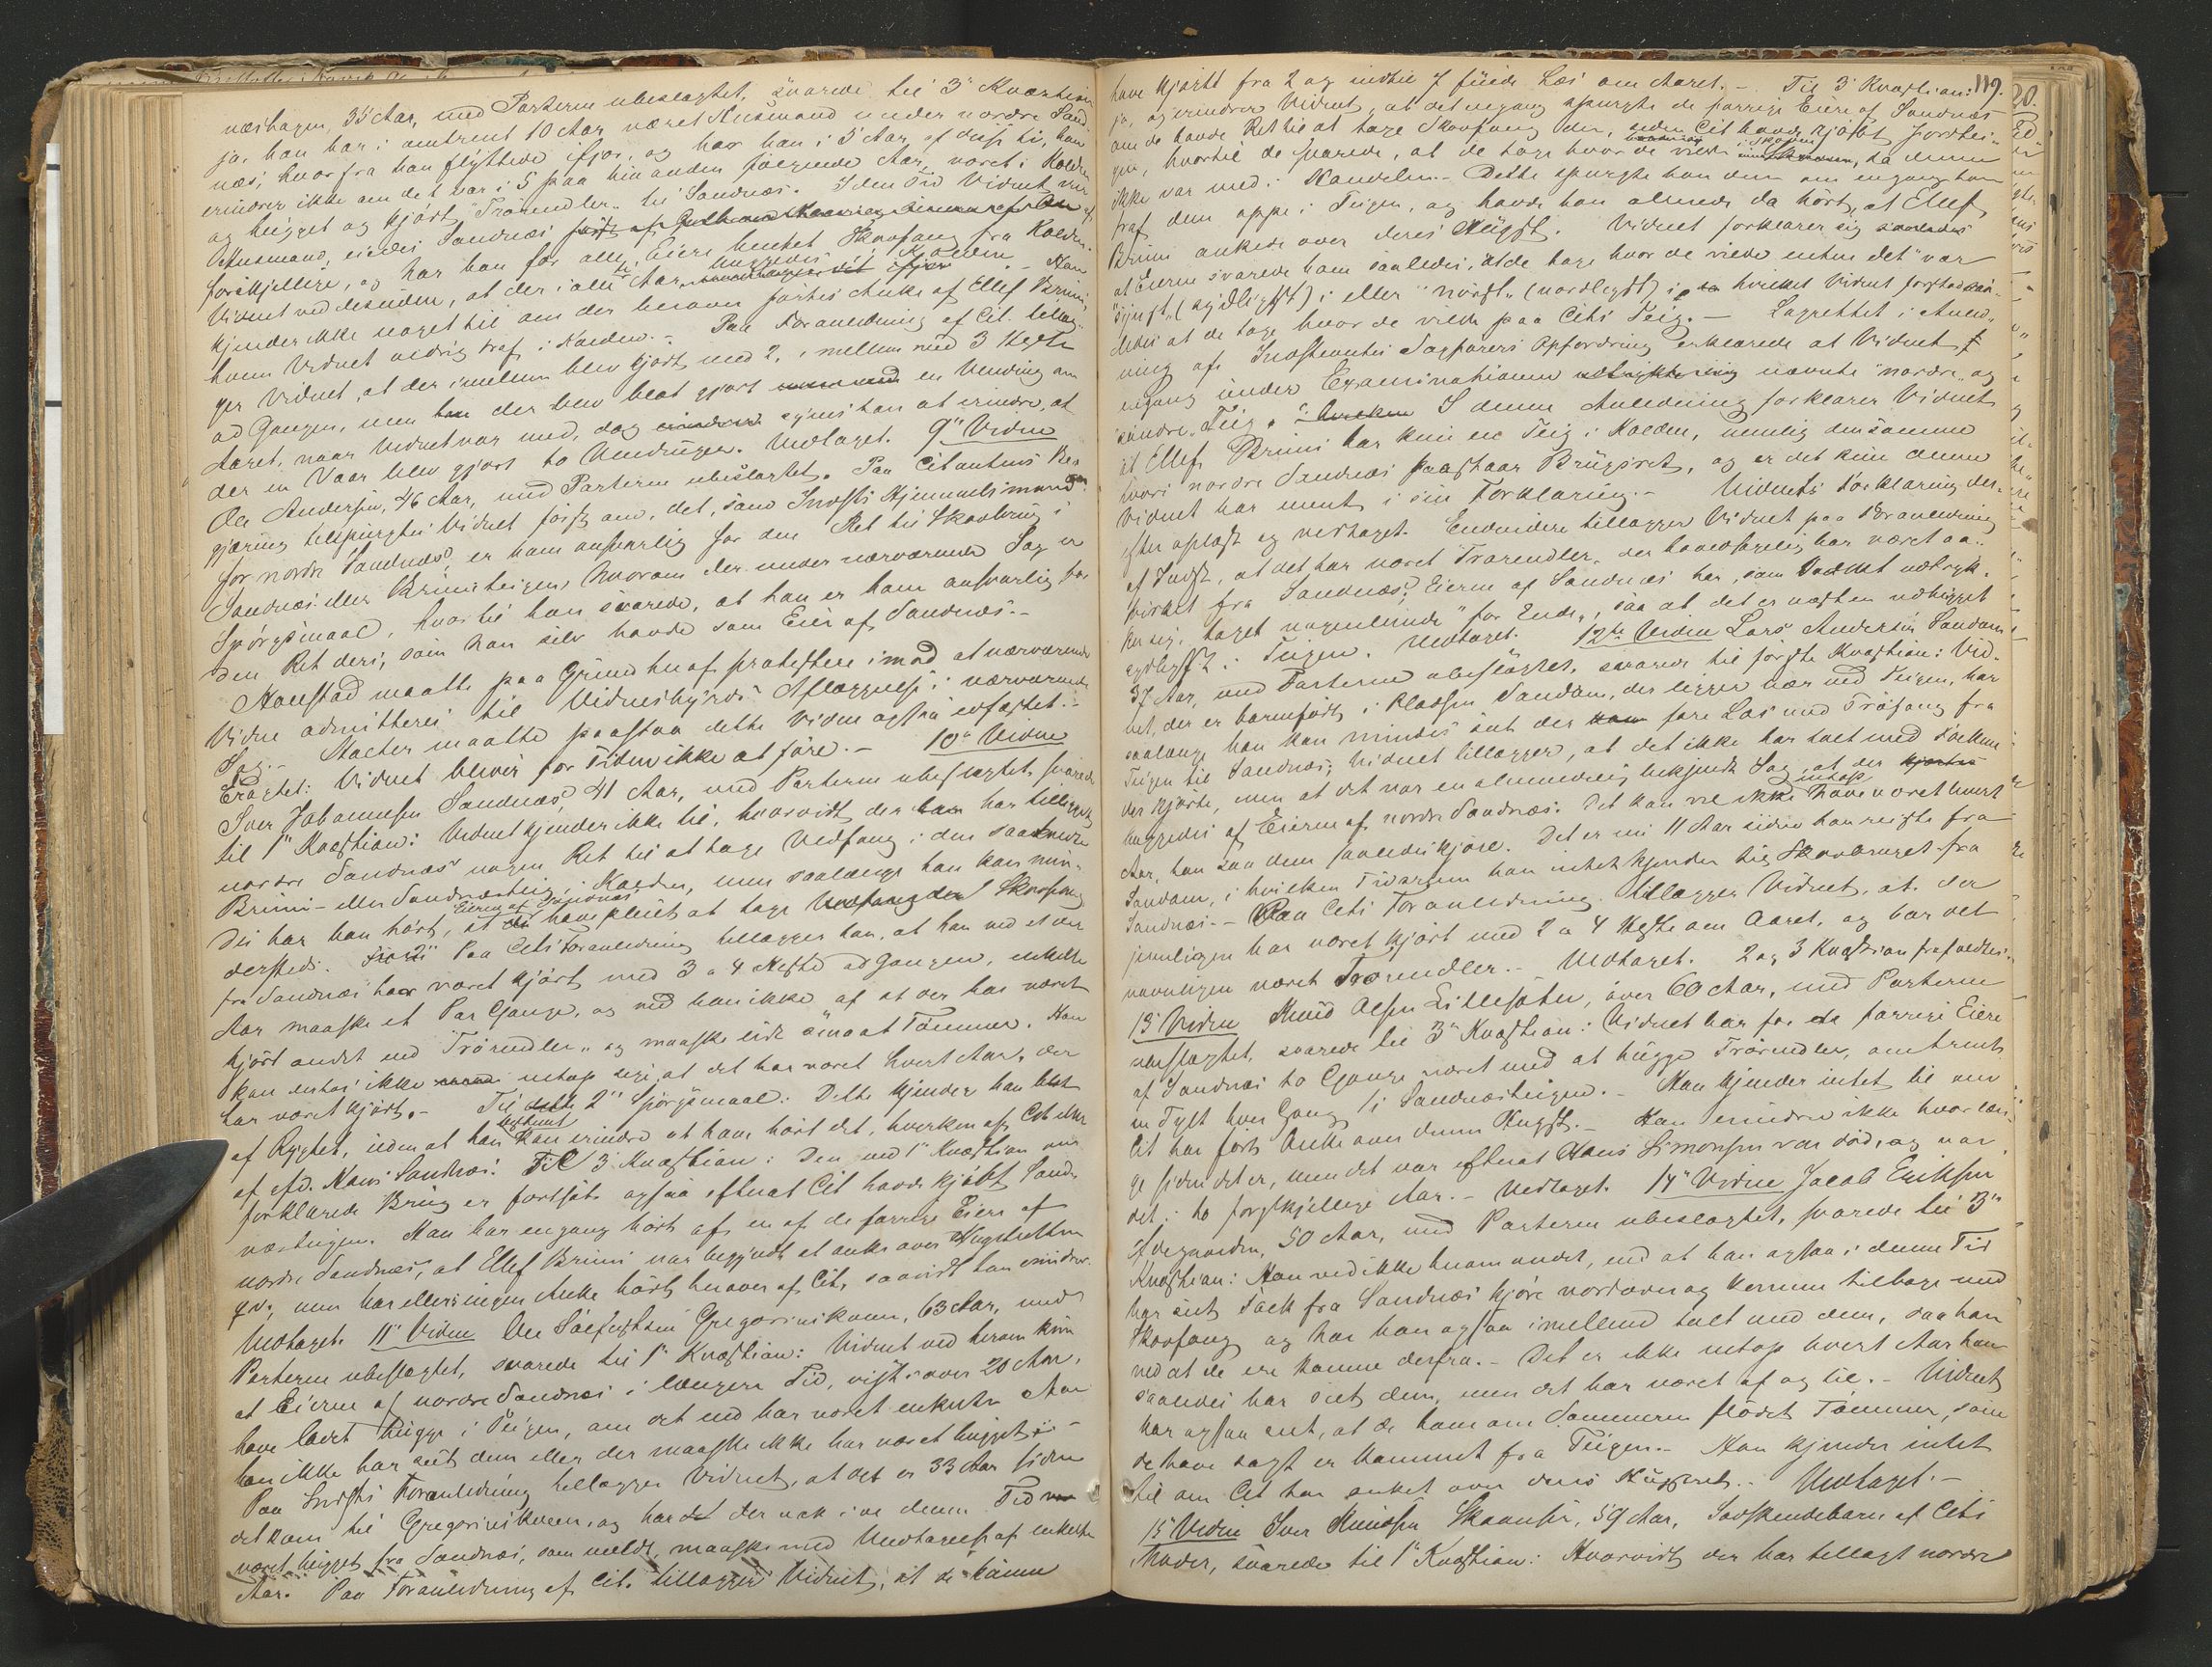 næshagen, 35 Aar, med Parterne ubeslægtet, svarede til 3' Kvæstion
ja, han har i omtrent 10 Aar været Husmand under nordre Sand-
næs, hvorfra han flyttede ifjor, og har han i 5 Aar, af disse ti, han
erindrer ikke om det var i 5 paa hinanden følgende Aar, været i Kolden
og hugget og kjørt "Trøvendler" til Sandnæs. I den Tid Vidnet var
Husmand, eiedes Sandnæs først af
forskjellige, og har han for alle Eiere hentet Skovfang fra Kolden.
Vidnet ved desuden, at der i alle Aar huggedes i Kolden. - Han
kjender ikke noget til om der herover førtes Anke af Ellef Brimi,
hvem Vidnet aldrig traf i Kolden. - Paa Foranledning af Cit. tillæg-
ger Vidnet, at der imellem blev kjørt med 2, imellem med 3 Heste
ad Gangen, men der blev blot gjort en Vending om
Aaret, naar Vidnet var med, dog synes han at erindre, at
der en Vaar blev gjort to Vendinger. Vedtaget. 9' Vidne
Ole Andersen, 46 Aar, med Parterne ubeslægtet. Paa Citantens Be-
gjæring tilspurgtes Vidnet først om, det, som Indsts Hjemmelsmand
for nordre Sandnæs, er ham ansvarlig for den Ret til Skovbrug i
Sandnæs- eller Brimiteigen, hvorom der under nærværende Sag er
Spørgsmaal, hvortil han svarede, at han er ham ansvarlig for
den Ret deri, som han selv havde som Eier af Sandnæs. -
Haustad maatte paa Grund heraf protestere imod at nærværende
Vidne admitteres til Vidnesbyrds Aflæggelse i nærværende
Sag. - maatte paastaa dette Vidne ogsaa edfæstet. -
Eragtet: Vidnet bliver for Tiden ikke at føre. - 10' Vidne
Iver Johannesen Sandnæs, 41 Aar, med Parterne ubeslægtet, svarede
til 1' Kvæstion: Vidnet kjender ikke til, hvorvidt der har tilligget
nordre Sandnæs nogen Ret til at tage Vedfang i den saakaldte
Brimi- eller Sandnæsteig i Kolden, men saalænge han kan min-
des har han hørt, at Eierne af Sandnæs have pleiet at tage Skovfang
dersteds. Paa Cits Foranledning tillægger han, at han ved at der
fra Sandnæs har været kjørt med 3 a 4 Heste ad Gangen, enkelte
Aar maaske et Par Gange, og ved han ikke af at der har været
kjørt andet end "Trøvendler" og maaske lidt smaat Tømmer. Han
kan endog ikke netop sige, at det har været hvert Aar, der
har været kjørt. - Til 2' Spørgsmaal: Dette kjender han blot
af Rygtet, uden at han bestemt kan erindre at have hørt det, hverken af Cit. eller
af afd. Hans Sandnæs. Til 3' Kvæstion: Den ved 1' Kvæstion om
forklarede Brug er fortsat ogsaa efterat Cit havde kjøbt Sand-
næsteigen. Han har engang hørt af en af de forrige Eiere af
nordre Sandnæs, at Ellef Brimi var begyndt at anke over Hugstretten
qv., men har ellers ingen Anke hørt herover af Cit, saavidt han erindrer.
Vedtaget. 11' Vidne Ole Sølfestsen Gregorsviken, 63 Aar, med
Parterne ubeslægtet, svarede til 1' Kvæstion: Vidnet ved herom kun
at Eierne af nordre Sandnæs i længere Tid, vist over 20 Aar,
have ladet hugge i Teigen, om det end har været enkelte Aar
han ikke har seet dem eller der maaske ikke har været hugget. -
Paa Indsts Foranledning tillægger Vidnet, at det er 33 Aar siden
det kom til Gregorsviken, og har der nok i denne Tid
været hugget fra Sandnæs, som meldt, maaske med Undtagelse af enkelte
Aar. Paa Foranledning af Cit. tillægger Vidnet, at de kunne
119.
have kjørt fra 2 og indtil 7 fulde Læs om Aaret. - Til 3' Kvæstion:
ja, og erindrer Vidnet, at det engang spurgte de forrige Eiere af Sandnæs
om de havde Ret til at tage Skovfang der, siden Cit havde kjøbt Jordtei-
gen, hvortil de svarede, at de toge hvor de vilde i Skoven, da denne
ikke var med i Handelen. - Dette spurgte han dem om engang han
traf dem oppe i Teigen, og havde han allerede da hørt, at Ellef
Brimi ankede over deres Hugst. Vidnet forklarer sig saaledes
at Eierne svarede ham saaledes, at de toge hvor de vilde enten det var
"synst" (sydligst) i eller "nørst" (nordligst) i, hvilket Vidnet forstod saa-
ledes at de toge hvor de vilde paa Cits Teig. - Lagrettet i Anled-
ning af Indstevntes Sagførers Opfordring erklærede at Vidnet
engang under Examinationen nævnte "nordre" og
"søndre" Teig. I denne Anledning forklarer Vidnet
at Ellef Brimi har kun en Teig i Kolden, nemlig den samme
hvori nordre Sandnæs paastaar Brugsret, og er det kun denne
Vidnet har ment i sin Forklaring. - Vidnets Forklaring der-
efter oplæst og vedtaget. Endvidere tillægger Vidnet paa Foranledning
af Indst, at det har været Trøvendler, der hovedsagelig har været aa-
virket fra Sandnæs; Eierne af Sandnæs har, som Vidnet udtryk-
ker sig, taget nogenlunde "for Ende", saa at det er næsten udhugget
sydligst i Teigen. Vedtaget. 12te Vidne Lars Andersen Sandom
37 Aar, med Parterne ubeslægtet, svarede til første Kvæstion: Vid-
net, der er barnefødt i Pladsen Sandom, der ligger nær ved Teigen, har
saalænge han kan mindes seet der fare Læs med Træfang fra
Teigen til Sandnæs; Vidnet tillægger, at det ikke har talt med Folkene
der kjørte, men at det var en almindelig bekjendt Sag, at der
huggedes af Eierne af nordre Sandnæs. Det kan vel ikke netop have været hvert
Aar, han saa dem saaledes kjøre. Det er nu 11 Aar siden han reiste fra
Sandom, i hvilken Tidsrum han intet kjender til Skovbruget fra
Sandnæs. - Paa Cits Foranledning tillægger Vidnet, at der
jevnligen har været kjørt med 2 a 4 Heste om Aaret, og har det
navnligen været Trøvendler. - Vedtaget. 2 og 3 Kvæstion frafaldtes.
13' Vidne Knud Olsen Lillesæter, over 60 Aar, med Parterne
ubeslægtet, svarede til 3' Kvæstion: Vidnet har for de forrige Eiere
af Sandnæs to Gange været med at hugge Trøvendler, omtrent
en Tylt hver Gang i Sandnæsteigen. - Han kjender intet til om
Cit har ført Anke over denne Hugst. - Han erindrer ikke hvor læn-
ge siden det er, men det var efterat Hans Simonsen var død, og var
det i to forskjellige Aar. - Vedtaget. 14' Vidne Jacob Eriksen
50 Aar, med Parterne ubeslægtet, svarede til 3'
Kvæstion: Han ved ikke herom andet, end at han ogsaa i denne Tid
har seet Folk fra Sandnæs kjøre nordover og komme tilbage med
Skovfang og har han ogsaa imellem talt med dem, saa han
ved at de ere komne derfra. - Det er ikke netop hvert Aar han
saaledes har seet dem, men det har været af og til. - Vidnet
har ogsaa seet, at de have om Sommeren flødet Tømmer, som
de have sagt er kommet fra Teigen. - Han kjender intet
til om Cit har anket over deres Huggeret. - Vedtaget. -
15' Vidne Iver Knudsen Skaansar, 59 Aar, Sødskendebarn af Cits
Moder, svarede til 1' Kvæstion: Hvorvidt der har tillagt nordre